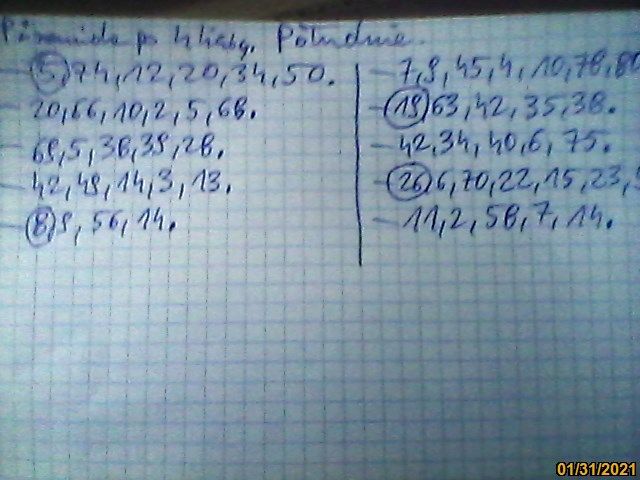 Piramida po 4 liczby. Południe.
- (5) 74, 12, 20, 34, 50.
- 20, 66, 10, 2, 5, 68.
- 69, 5, 38, 39, 28.
- 42, 49, 14, 3, 13.
- (8) 9, 56, 14.
- 7, 9, 45, 4, 10, 78, 80
- (19) 63, 42, 35, 38.
- 42, 34, 40, 6, 75.
- (26) 6, 70, 22, 15, 23,
- 11, 2, 58, 7, 14.
01/31/2021